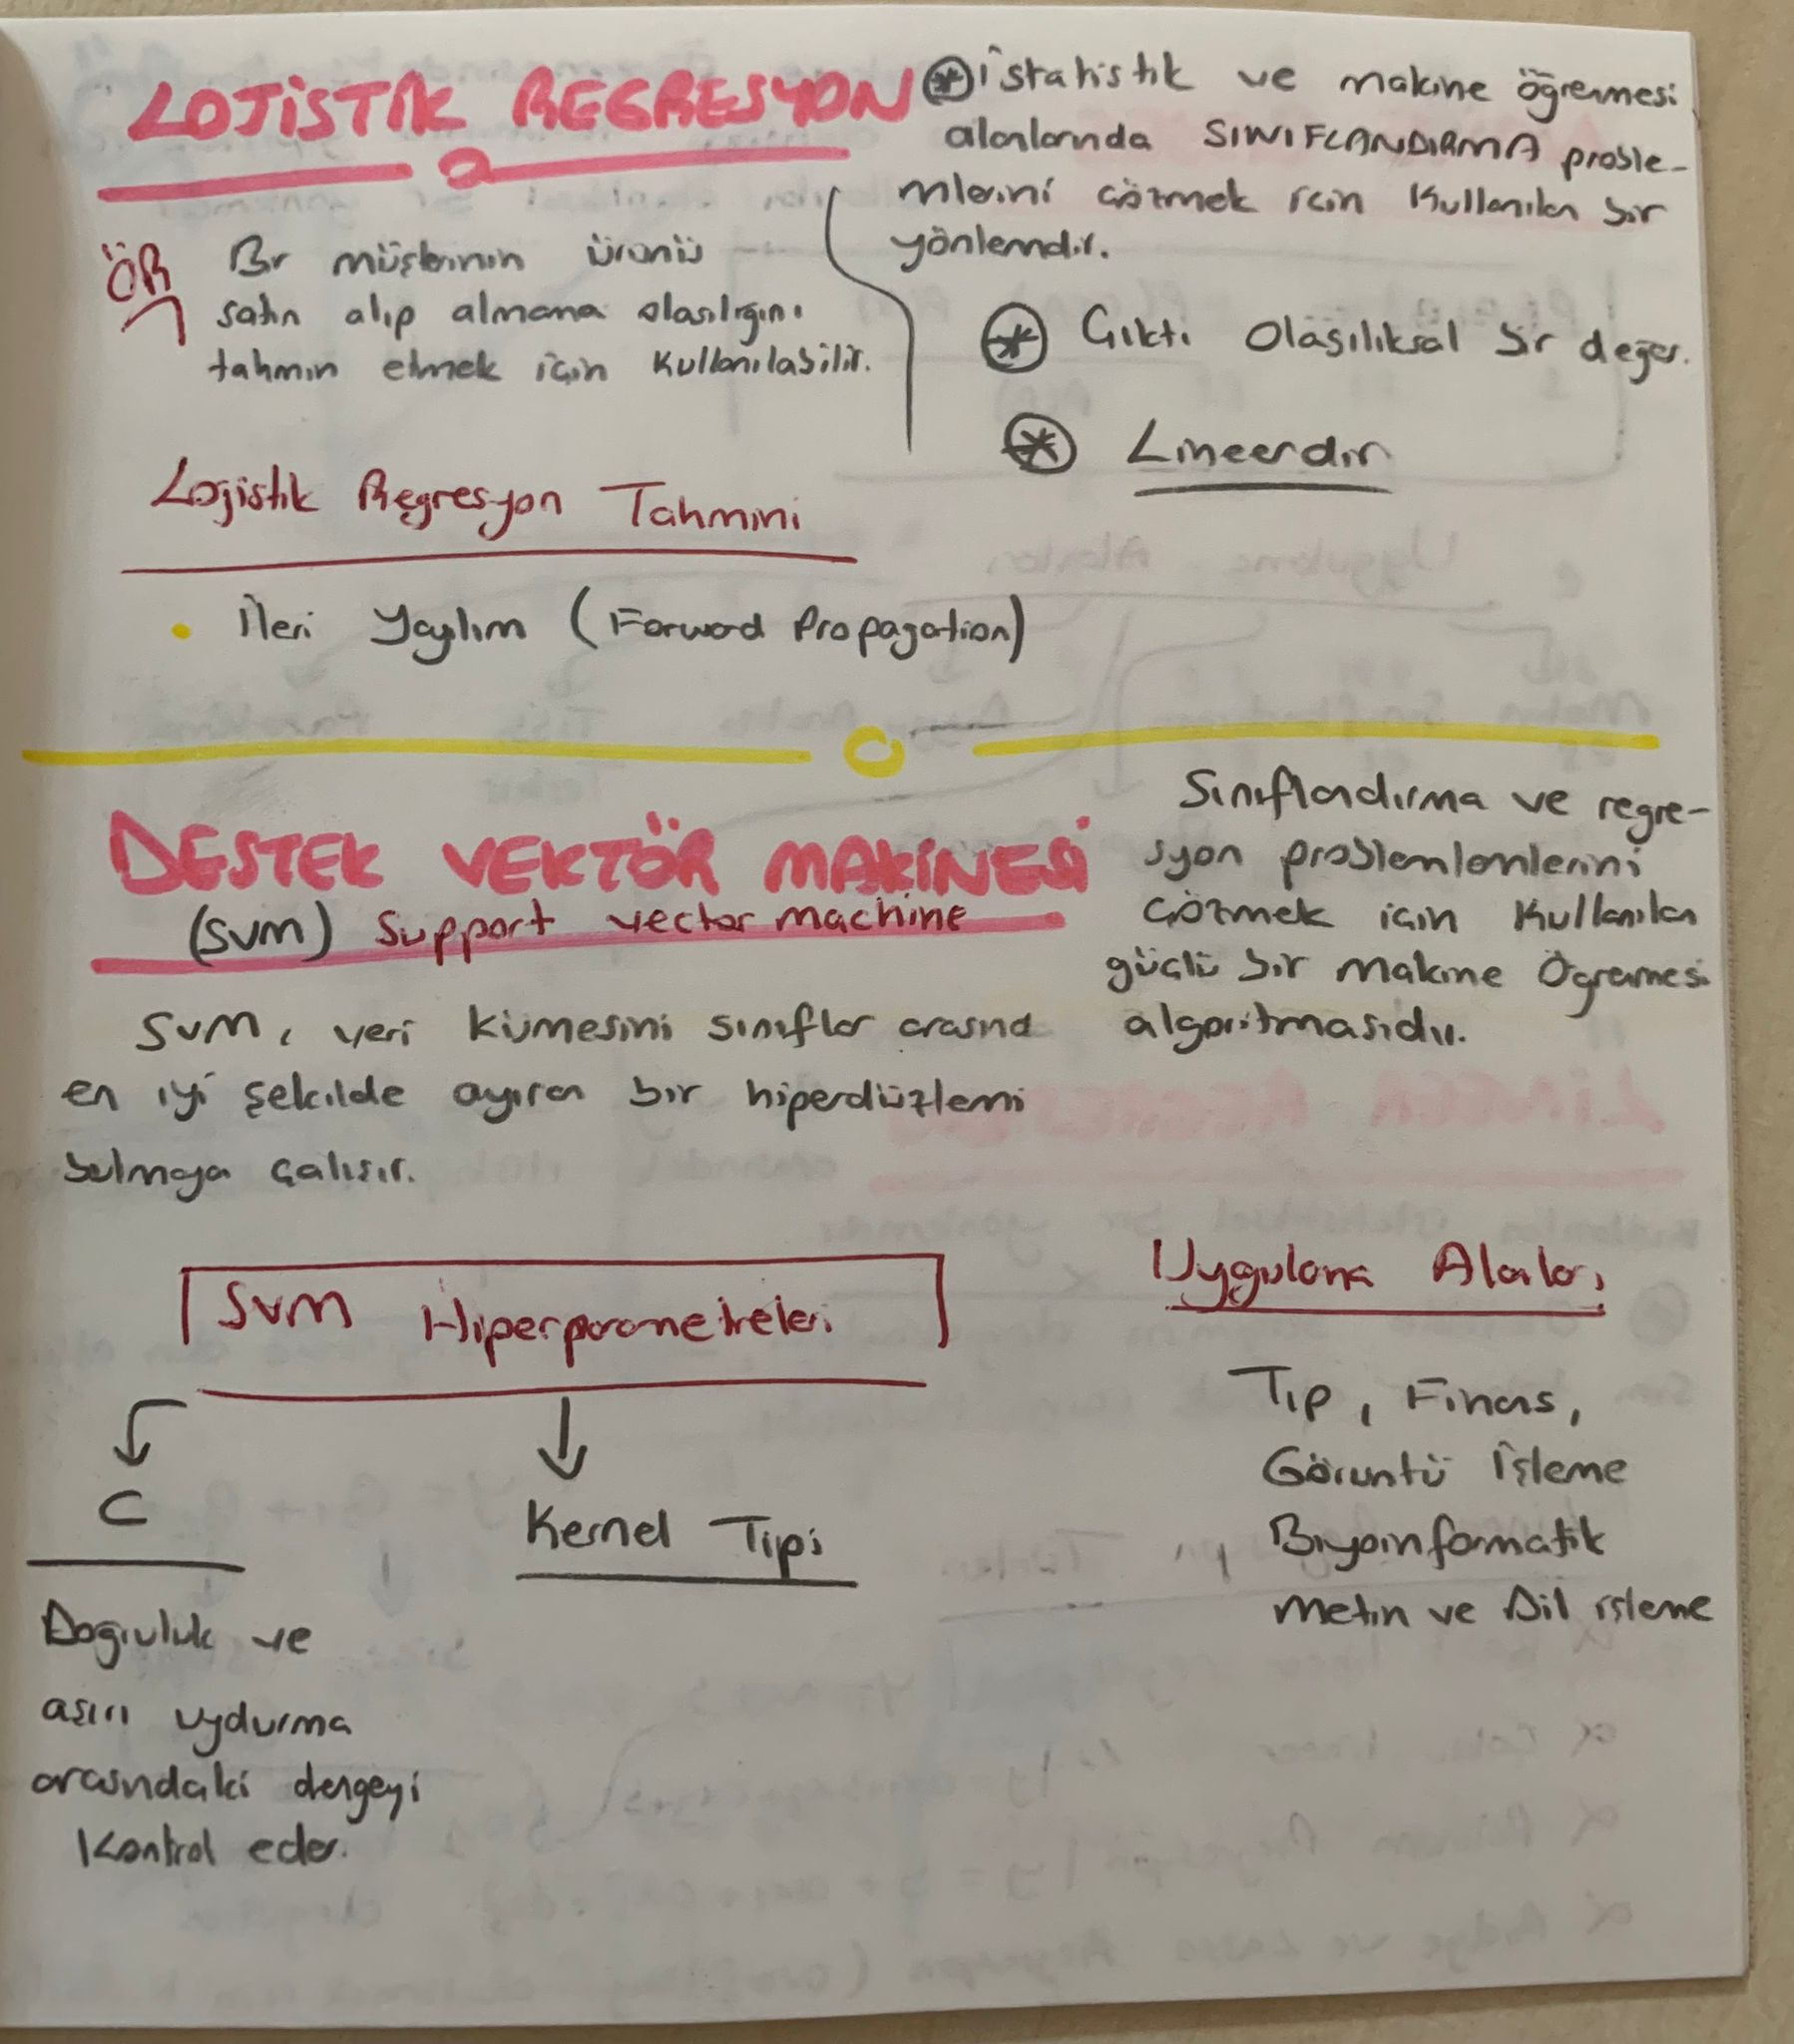 LOJİSTİK REGRESYON
İstatistik ve makine öğrenmesi
alanlarında SINIFLANDIRMA proble-
mlerini çözmek için kullanılan bir
yönlemdir.
ÖR
Bir müşterinin ürünü
satın alıp almama olasılığını
tahmin etmek için kullanılabilir.
Çıktı Olasılıksal bir değer.
Lineerdir
Lojistik Regresyon Tahmini
• İleri Yayılım (Forward Propagation)
DESTEK VEKTÖR MAKİNESİ
(SVM) Support vector machine
Sınıflandırma ve regre-
syon problemlemlerini
çözmek için kullanılan
güçlü bir makine Öğrenmesi
algoritmasıdır.
SVM, veri kümesini sınıflar arasınd
en iyi şekilde ayıran bir hiperdüzlemi
bulmaya çalışır.
SVM Hiperparametreleri
C
Doğruluk ve
aşırı uydurma
arasındaki dengeyi
kontrol eder.
Kernel Tipi
Uygulama Alanları
Tıp, Finans,
Görüntü İşleme
Biyoinformatik
Metin ve Dil işleme